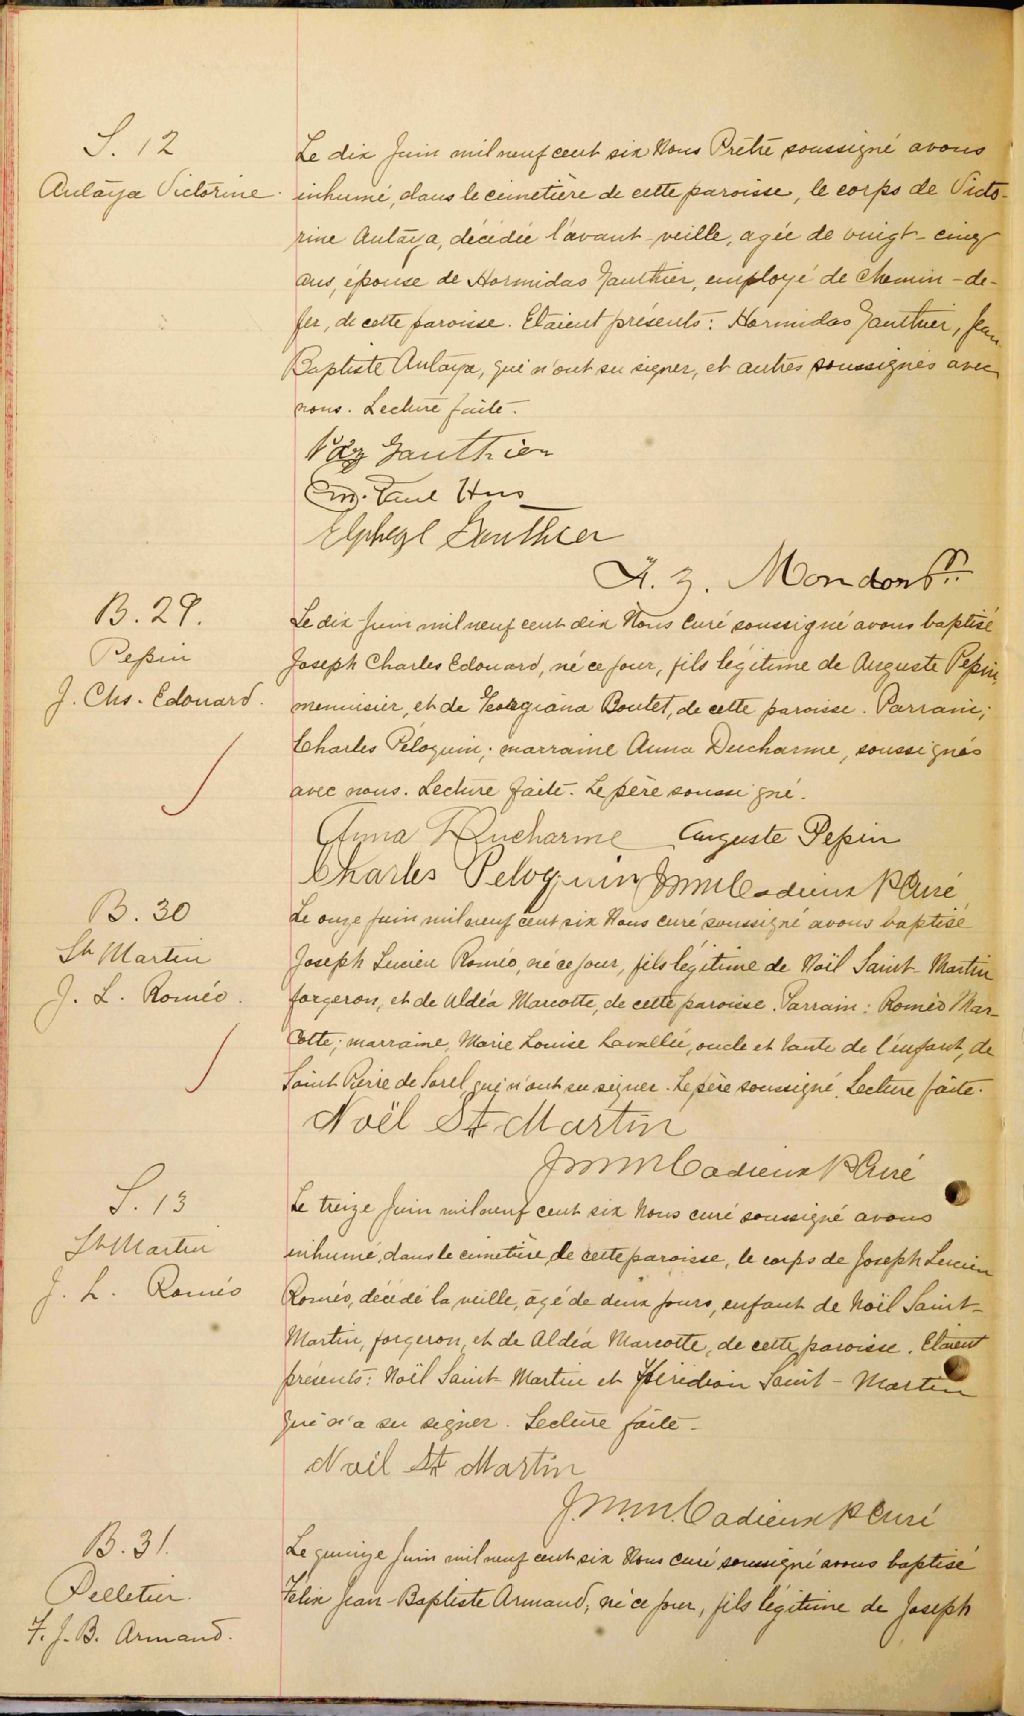 S. 12
Aulaya Victorine.
Le dix Juin mil neuf cent six Nous Prêtre soussigné avons
inhumé, dans le cimetière de cette paroisse, le corps de Victo-
rine Aulaya, décédée l'avant-veille, agée de vingt-cinq
ans, épouse de Hormidas Gauthier, employé de chemin-de-
fer, de cette paroisse. Etaient présents: Hormidas Gauthier, Jean
Baptiste Aulaya, qui n'ont su signer, et autres soussignés avec
nous. Lecture faite.
Gauthier
Paul Hus
Gauthier
Mondor Ptre
B. 29.
Pepin
J. Chs. Edouard.
Le dix Juin mil neuf cent dix Nous Curé soussigné avons baptisé
Joseph Charles Edouard, né ce jour, fils légitime de Auguste Pepin,
menuisier, et de Georgiana Boutet, de cette paroisse. Parrain;
Charles Péloquin; marraine Anna Ducharme, soussignés
avec nous. Lecture faite. Le père soussigné.
Anna Ducharme Auguste Pepin
Charles Peloquin J M M Cadieux P Curé
B. 30
St Martin
J. L. Roméo.
Le onze Juin mil neuf cent six Nous curé soussigné avons baptisé
Joseph Lucien Roméo, né ce jour, fils légitime de Noël Saint-Martin
forgeron, et de Aldéa Marcotte, de cette paroisse. Parrain: Roméo Mar-
cotte; marraine, Marie Louise Lavallée, oncle et tante de l'enfant, de
Saint Pierre de Sorel, qui n'ont su signer. Le père soussigné. Lecture faite.
Noël St Martin
J M M Cadieux P Curé
S. 13
St Martin
J. L. Roméo
Le treize Juin mil neuf cent six Nous curé soussigné avons
inhumé, dans le cimetière de cette paroisse, le corps de Joseph Lucien
Roméo, décédé la veille, âgé de deux jours, enfant de Noël Saint-
Martin, forgeron, et de Aldéa Marcotte, de cette paroisse. Etaient
présents: Noël Saint-Martin et Saint-Martin
qui n'a su signer. Lecture faite.
Noël St Martin
J. M. M. Cadieux P Curé
B. 31.
Pelletier.
F. J. B. Armand.
Le quinze Juin mil neuf cent six Nous curé soussigné avons baptisé
Felix Jean-Baptiste Armand, né ce jour, fils légitime de Joseph